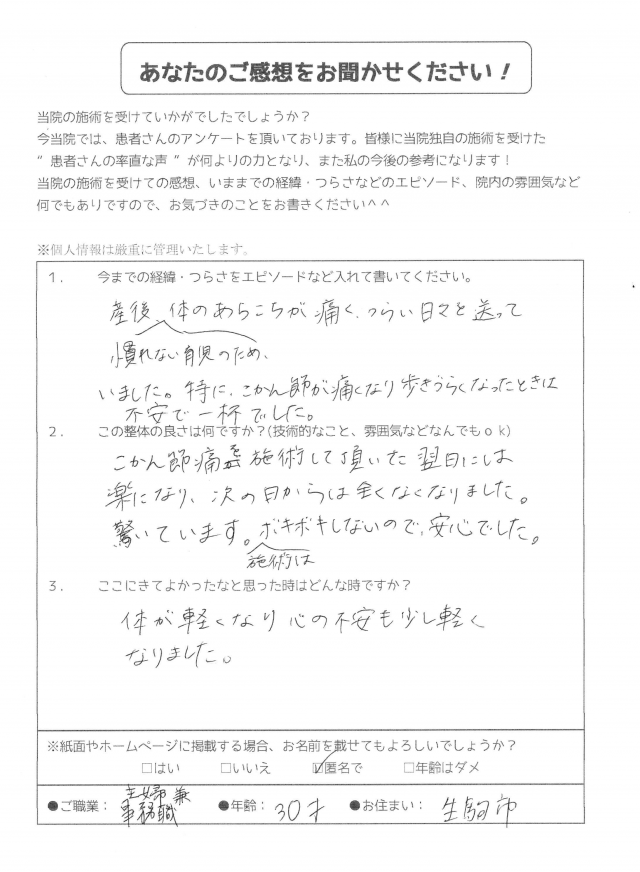 あなたのご感想をお聞かせください！
当院の施術を受けていかがでしたでしょうか？
今当院では、患者さんのアンケートを頂いております。皆様に当院独自の施術を受けた
“ 患者さんの率直な声 ”が何よりの力となり、また私の今後の参考になります！
当院の施術を受けての感想、いままでの経緯・つらさなどのエピソード、院内の雰囲気など
何でもありですので、お気づきのことをお書きください＾＾
※個人情報は厳重に管理いたします。
1．　今までの経緯・つらさをエピソードなど入れて書いてください。
産後、体のあちこちが痛く、つらい日々を送って
慣れない育児のため、
いました。特に、こかん節が痛くなり歩きづらくなったときは
不安で一杯でした。
2．　この整体の良さは何ですか？(技術的なこと、雰囲気などなんでもｏｋ)
こかん節痛を施術して頂いた翌日には
楽になり、次の日からは全くなくなりました。
驚いています。ボキボキしないので、安心でした。
施術は
3．　ここにきてよかったなと思った時はどんな時ですか？
体が軽くなり心の不安も少し軽く
なりました。
※紙面やホームページに掲載する場合、お名前を載せてもよろしいでしょうか？
□はい　□いいえ　☑匿名で　□年齢はダメ
●ご職業：　主婦兼　●年齢：　30才　●お住まい：　生駒市
事務職